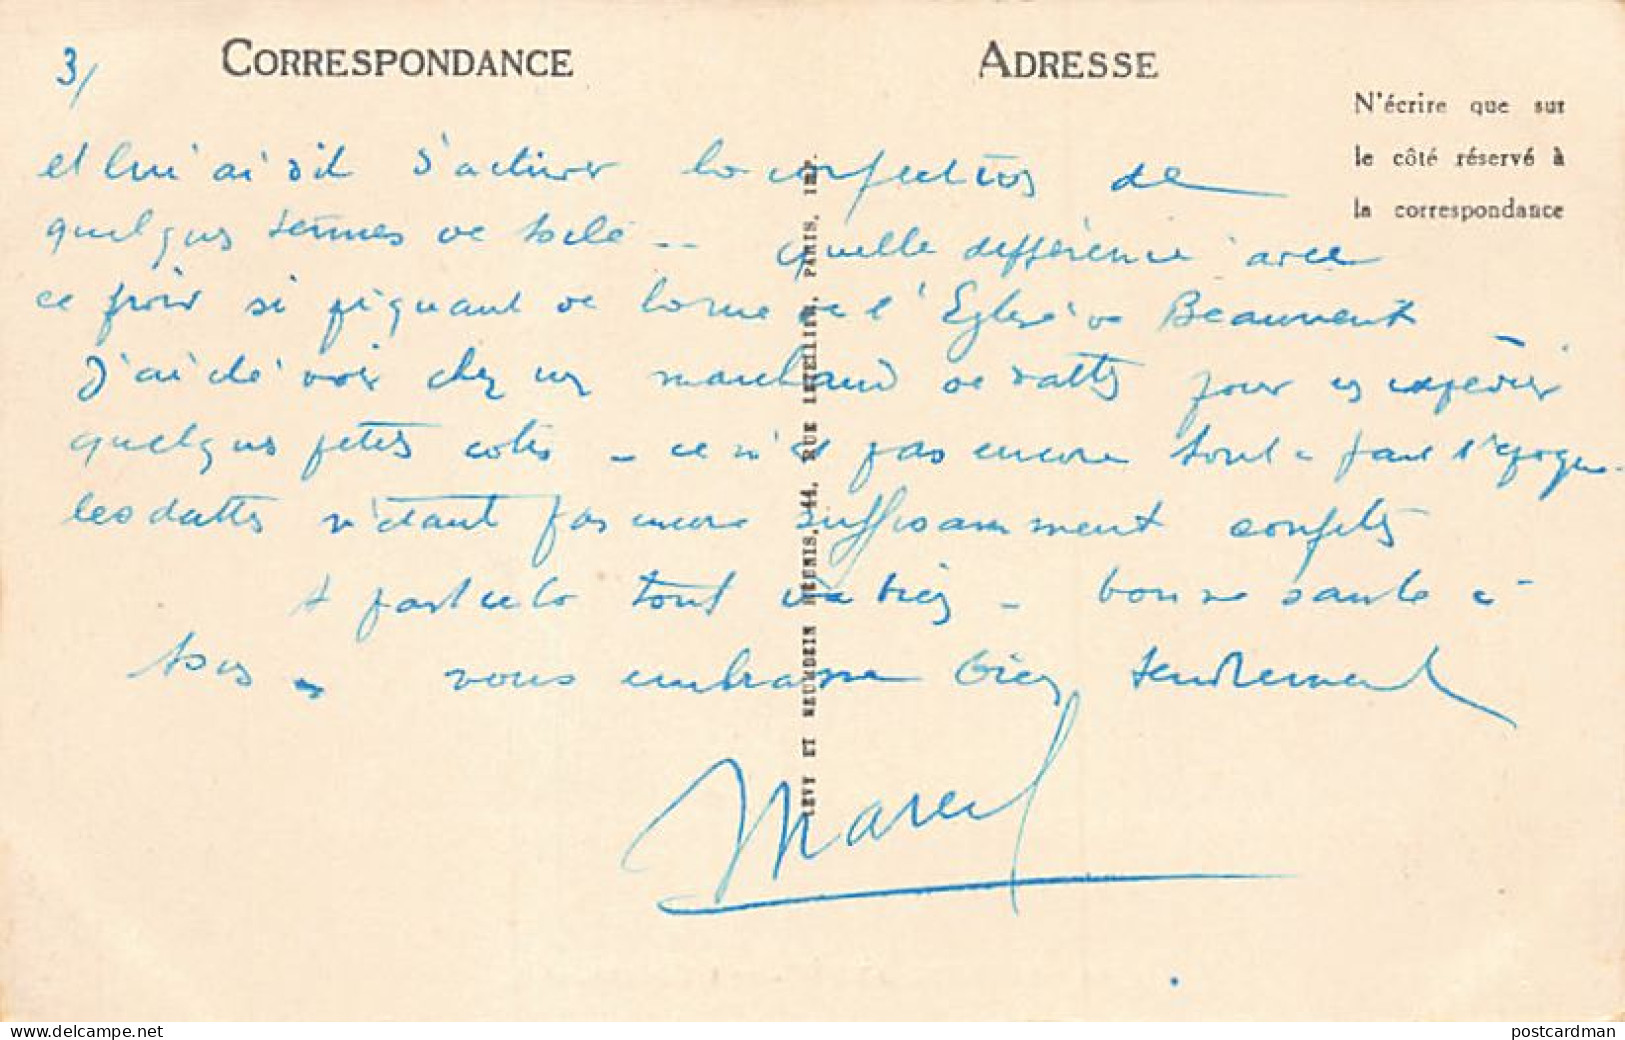 3/
CORRESPONDANCE
ADRESSE
N'écrire que sur
le côté réservé à
la correspondance
et lui ai dit d'activer la confection de
quelques tenues de toile -- quelle différence avec
ce froid si piquant de la rue de l'Eglise de Beaumont
J'ai été voir chez un marchand de dattes pour en expédier
quelques petits colis - ce n'est pas encore tout à fait l'époque
les dattes n'étant pas encore suffisamment confites
à part cela tout va bien - bonne santé à
tous - vous embrasse bien tendrement
Marcel
LEVY ET NEURDEIN RÉUNIS, 44, RUE LETELLIER, PARIS, IMP.
postcardman
www.delcampe.net